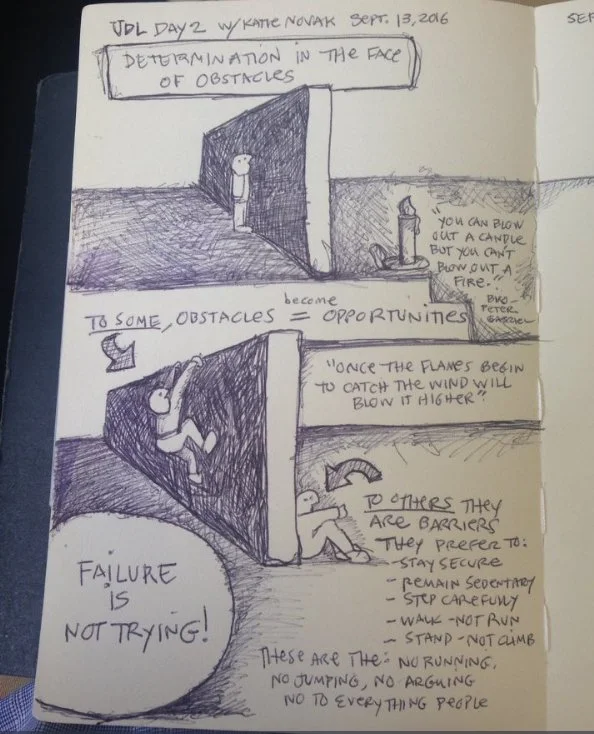 UDL DAY 2 W/ KATIE NOVAK SEPT. 13, 2016
SEP
DETERMINATION IN THE FACE
OF OBSTACLES
"YOU CAN BLOW
OUT A CANDLE
BUT YOU CAN'T
BLOW OUT A
FIRE."
BIKO -
PETER
GABRIEL
become
TO SOME, OBSTACLES = OPPORTUNITIES
"ONCE THE FLAMES BEGIN
TO CATCH THE WIND WILL
BLOW IT HIGHER"
TO OTHERS THEY
ARE BARRIERS
THEY PREFER TO:
- STAY SECURE
- REMAIN SEDENTARY
- STEP CAREFULLY
- WALK - NOT RUN
- STAND - NOT CLIMB
FAILURE
IS
NOT TRYING!
THESE ARE THE: NO RUNNING,
NO JUMPING, NO ARGUING
NO TO EVERYTHING PEOPLE